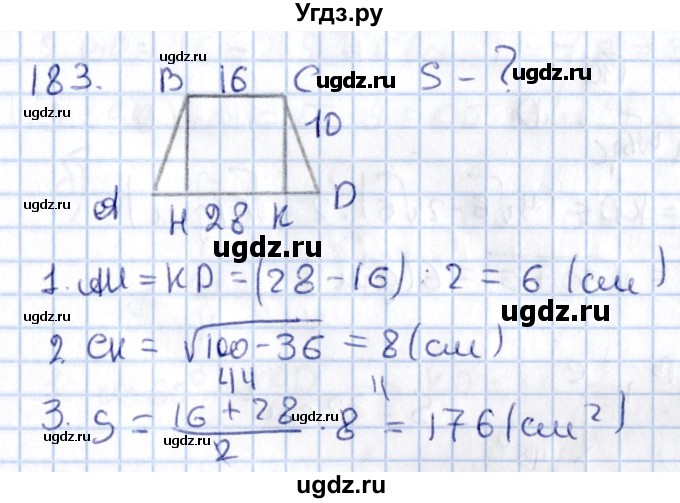 Угдз.ру
ugdz.ru
183. B 16 C ugdz.ru S - ? ugdz.ru
ugdz.ru
10
ugdz.ru A H 28 K D
ugdz.ru ugdz.ru
1. AH = KD = (28 - 16) : 2 = 6 (см)
ugdz.ru ugdz.ru
2. CK = √100-36 = 8 (см)
ugdz.ru
44
3. S = 16 + 28 / 2 · 8 = 176 (см²)
ugdz.ru ugdz.ru
ugdz.ru